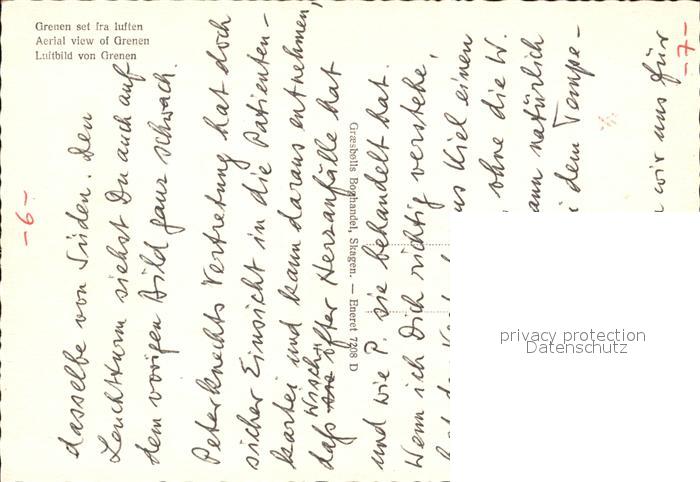 Grenen set fra luften
Aerial view of Grenen
Luftbild von Grenen
-6-
dasselbe von Süden. Den
Leuchtturm siehst Du auch auf
dem vorigen Bild ganz schwach.
Peterknechts Vertretung hat doch
sicher Einsicht in die Patienten-
kartei und kann daraus entnehmen,
daß Wisch öfter Herzanfälle hat
und wie P. sie behandelt hat.
Wenn ich Dich richtig verstehe,
us Kiel einen
ohne die W.
ann natürlich
dem Tempe-
wir uns für
-7-
Græsbølls Boghandel, Skagen. — Eneret 7208 D
privacy protection
Datenschutz